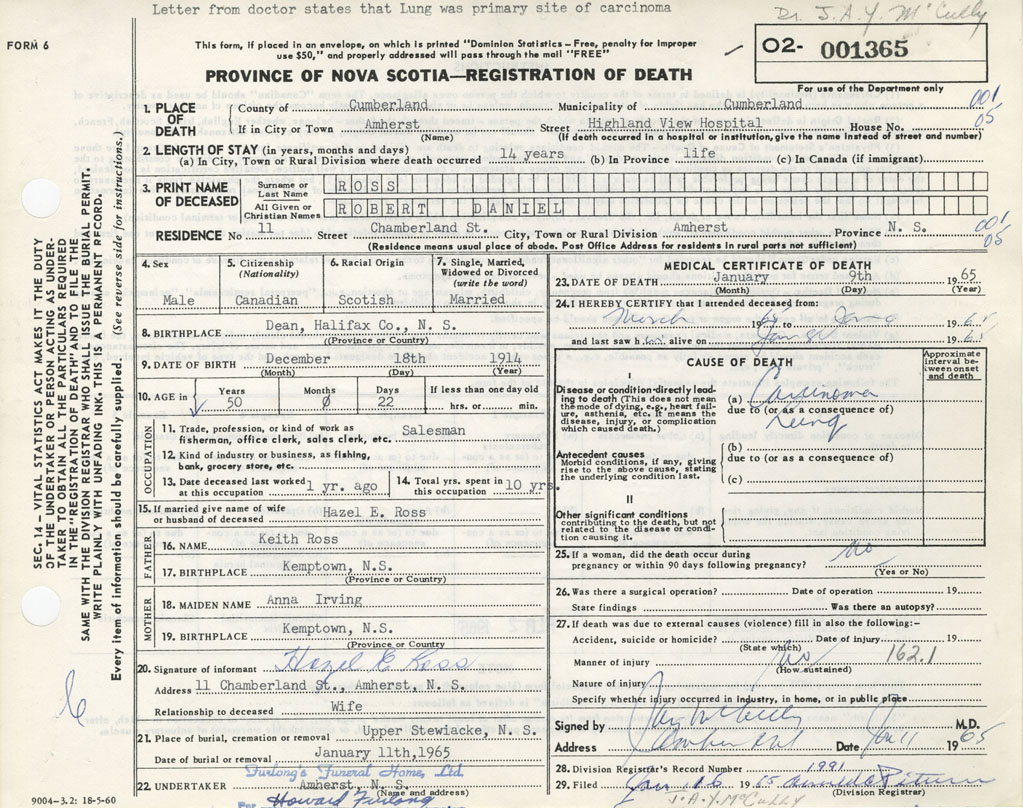 Letter from doctor states that Lung was primary site of carcinoma
Dr. J.A.Y. McCully
FORM 6
This form, if placed in an envelope, on which is printed "Dominion Statistics – Free, penalty for improper
use $50," and properly addressed will pass through the mail "FREE"
O2- 001365
PROVINCE OF NOVA SCOTIA—REGISTRATION OF DEATH
For use of the Department only
1. PLACE OF DEATH
County of Cumberland Municipality of Cumberland 001
If in City or Town Amherst Street Highland View Hospital House No. 05
(Name) (If death occurred in a hospital or institution, give the name instead of street and number)
2. LENGTH OF STAY (in years, months and days)
(a) In City, Town or Rural Division where death occurred 14 years (b) In Province life (c) In Canada (if immigrant)
3. PRINT NAME OF DECEASED
Surname or Last Name ROSS
All Given or Christian Names ROBERT DANIEL
RESIDENCE No 11 Street Chamberland St. City, Town or Rural Division Amherst Province N. S. 001 05
(Residence means usual place of abode. Post Office Address for residents in rural parts not sufficient)
4. Sex Male
5. Citizenship (Nationality) Canadian
6. Racial Origin Scottish
7. Single, Married, Widowed or Divorced (write the word) Married
8. BIRTHPLACE Dean, Halifax Co., N. S.
(Province or Country)
9. DATE OF BIRTH December 18th 1914
(Month) (Day) (Year)
10. AGE in Years 50 Months 0 Days 22 If less than one day old hrs. or min.
OCCUPATION
11. Trade, profession, or kind of work as Salesman
fisherman, office clerk, sales clerk, etc.
12. Kind of industry or business, as fishing,
bank, grocery store, etc.
13. Date deceased last worked at this occupation 1 yr. ago
14. Total yrs. spent in this occupation 10 yrs.
15. If married give name of wife or husband of deceased Hazel E. Ross
FATHER
16. NAME Keith Ross
17. BIRTHPLACE Kemptown, N.S.
(Province or Country)
MOTHER
18. MAIDEN NAME Anna Irving
19. BIRTHPLACE Kemptown, N.S.
(Province or Country)
20. Signature of informant Hazel E Ross
Address 11 Chamberland St., Amherst, N. S.
Relationship to deceased Wife
21. Place of burial, cremation or removal Upper Stewiacke, N. S.
Date of burial or removal January 11th,1965
Furlong's Funeral Home, Ltd.
22. UNDERTAKER Amherst, N.S.
(Name and address)
Howard Furlong
9004-3.2: 18-5-60
MEDICAL CERTIFICATE OF DEATH
23. DATE OF DEATH January 9th 1965
(Month) (Day) (Year)
24. I HEREBY CERTIFY that I attended deceased from:
March 1964 to Jan 9 1965
and last saw him alive on Jan 9 1965
CAUSE OF DEATH
Approximate interval between onset and death
I
Disease or condition directly leading to death (This does not mean the mode of dying, e.g., heart failure, asthenia, etc. It means the disease, injury, or complication which caused death.)
(a) Carcinoma
due to (or as a consequence of)
Lung
Antecedent causes
Morbid conditions, if any, giving rise to the above cause, stating the underlying condition last.
(b)
due to (or as a consequence of)
(c)
II
Other significant conditions
contributing to the death, but not related to the disease or condition causing it.
25. If a woman, did the death occur during
pregnancy or within 90 days following pregnancy? no
(Yes or No)
26. Was there a surgical operation? Date of operation 19
State findings Was there an autopsy?
27. If death was due to external causes (violence) fill in also the following:–
Accident, suicide or homicide? Date of injury 19
(State which)
Manner of injury No 162.1
(How sustained)
Nature of injury
Specify whether injury occurred in industry, in home, or in public place
Signed by M.D.
Address Amherst Date Jan 11 1965
28. Division Registrar's Record Number 1991
29. Filed Jan 16 1965
(Division Registrar)
J.A.Y. McCully
SEC. 14 – VITAL STATISTICS ACT MAKES IT THE DUTY
OF THE UNDERTAKER OR PERSON ACTING AS UNDER-
TAKER TO OBTAIN ALL THE PARTICULARS REQUIRED
IN THE "REGISTRATION OF DEATH" AND TO FILE THE
SAME WITH THE DIVISION REGISTRAR WHO SHALL ISSUE THE BURIAL PERMIT.
WRITE PLAINLY WITH UNFADING INK. THIS IS A PERMANENT RECORD.
Every item of information should be carefully supplied. (See reverse side for instructions.)